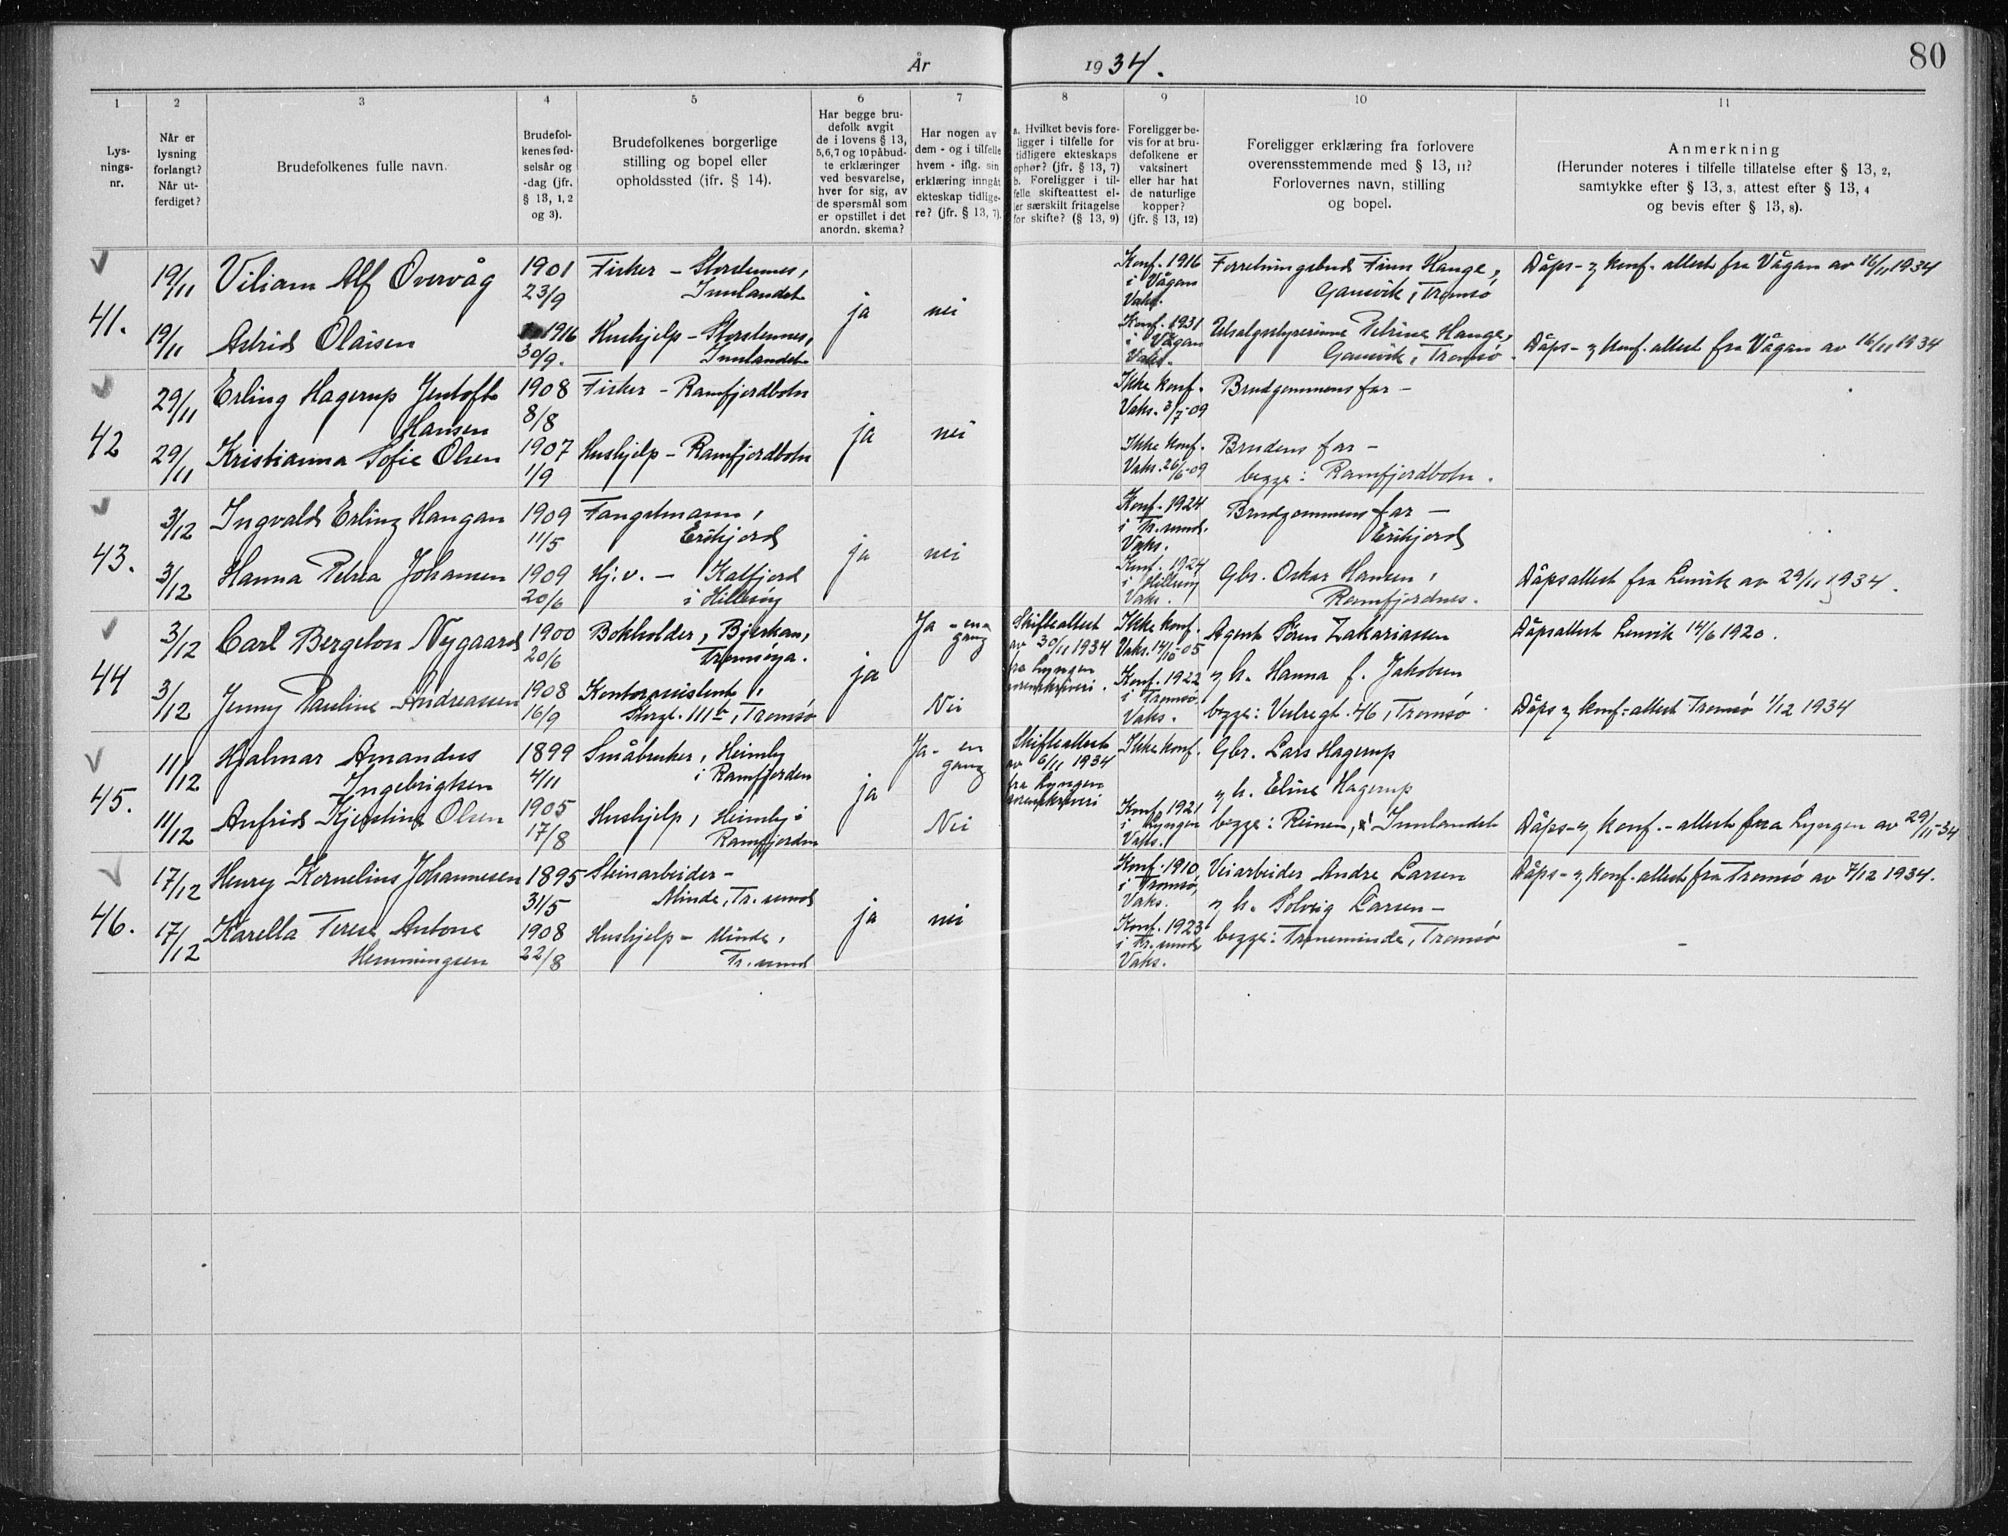 År
1934.
80
1
2
3
4
5
6
7
8
9
10
11
Lys-
nings-
nr.
Når er
lysning
forlangt?
Når ut-
ferdiget?
Brudefolkenes fulle navn.
Brudefol-
kenes fød-
selsår og
-dag (jfr.
§ 13, 1, 2
og 3).
Brudefolkenes borgerlige
stilling og bopel eller
opholdssted (ifr. § 14).
Har begge bru-
defolk avgit
de i lovens § 13,
5, 6, 7 og 10 påbud-
te erklæringer
ved besvarelse,
hver for sig, av
de spørsmål som
er opstillet i det
anordn. skema?
Har nogen av
dem - og i tilfelle
hvem - iflg. sin
erklæring inngåt
ekteskap tidlige-
re? (jfr. § 13, 7).
a. Hvilket bevis fore-
ligger i tilfelle for
tidligere ekteskaps
ophør? (jfr. § 13, 7)
b. Foreligger i til-
felle skifteattest el-
ler særskilt fritagelse
for skifte? (§ 13, 9)
Foreligger be-
vis for at bru-
defolkene er
vaksinert
eller har hat
de naturlige
kopper?
(jfr. § 13, 12)
Foreligger erklæring fra forlovere
overensstemmende med § 13, 11?
Forlovernes navn, stilling
og bopel.
Anmerkning
(Herunder noteres i tilfelle tillatelse efter § 13, 2,
samtykke efter § 13, 3, attest efter § 13, 4
og bevis efter § 13, 8).
41.
19/11
Viliam Alf Overvåg
1901
23/9
Fisker - Storstennes,
Innlandet
ja
nei
Konf. 1916
i Vågan
Vaks.
Forretningsbud Finn Hauge,
Gansvik, Tromsö
Dåps- og konf.-attest fra Vågan av 16/11 1934
19/11
Astrid Olaisen
1916
30/9.
Hushjelp - Storstennes,
Innlandet
Konf. 1931
i Vågan
Vaks.
Utsalgsstyrerinne Petrine Hauge,
Gansvik, Tromsö.
Dåps- og konf.-attest fra Vågan av 16/11 1934
42
29/11
Erling Hagerup Jentoft
Hansen
1908
8/8
Fisker - Ramfjordbotn
ja
nei
Ikke konf.
Vaks. 3/7-09
Brudgommens far -
29/11
Kristianna Sofie Olsen
1907
1/9
Hushjelp - Ramfjordbotn
Ikke konf.
Vaks. 26/6-09
Brudens far -
begge: Ramfjordbotn.
43.
3/12
Ingvald Erling Hangan
1909
11/5
Fangstmann,
Erikjord
ja
nei
Konf. 1924
i Tr.sund.
Vaks.
Brudgommens far -
Erikjord
3/12
Hanna Petra Johansen
1909
20/6
Hj.v. - Kalfjord
i Hillesöy
Konf. 1924
i Hillesöy
Vaks.
Gbr. Oskar Hansen,
Ramfjordnes.
Dåpsattest fra Lenvik av 29/11 1934.
44
3/12
Carl Bergeton Nygaard
1900
20/6
Bokholder, Bjerkan,
Tromsöya.
ja
Ja - en
gang
Skifteattest
av 30/11 1934
fra Lyngen
sorenskriveri.
Ikke konf.
Vaks. 14/10-05
Agent Sören Zakariassen
Dåpsattest Lenvik 14/6 1920.
og h. Hanna f. Jakobsen
3/12
Jenny Pauline Andreassen
1908
16/9
Kontorassistent,
Storgt. 111b, Tromsö
Nei
Konf. 1922
i Tromsö,
Vaks.
begge: Vestregt. 46, Tromsö
Dåps og konf.-attest Tromsö 1/12 1934
45.
11/12
Hjalmar Amandus
Ingebrigtsen
1899
4/11
Småbruker, Heimly
i Ramfjorden
ja
Ja - en
gang
Skifteattest
av 6/11 1934
fra Lyngen
sorenskriveri
Ikke konf.
Gbr. Lars Hagerup
og h. Eline Hagerup
11/12
Anfrid Kjerstine Olsen
1905
17/8
Hushjelp, Heimly i
Ramfjorden
Nei
Konf. 1921
i Lyngen
Vaks.
begge: Reinen, i Innlandet
Dåps- og konf.-attest fra Lyngen av 29/11-34
46.
17/12
Henry Kornelius Johannesen
1895
31/5
Steinarbeider -
Minde, Tr.sund
ja
nei
Konf. 1910
i Tromsö,
Vaks.
Veiarbeider Andre Larsen
Dåps- og konf.-attest fra Tromsö av 7/12 1934.
og h. Solveig Larsen -
17/12
Karella Terese Antone
Hemmingsen
1908
22/8
Hushjelp - Minde,
Tr.sund
Konf. 1923
i Tr.sund
Vaks.
begge: Traneminde, Tromsö
-